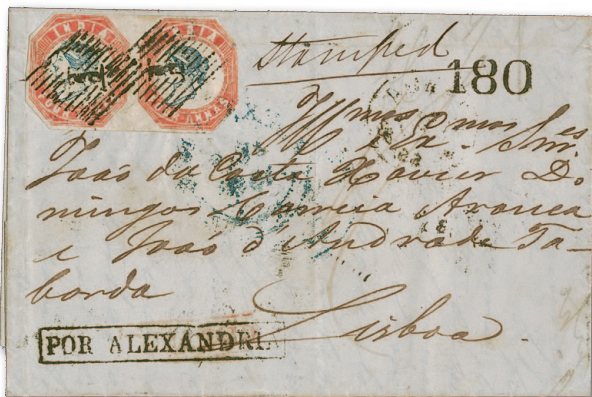 INDIA INDIA
FOUR ANNAS ANNAS
Stamped
180
Illmos e Exmos Snres
João da Costa Xavier Do-
mingos Correia Arouca
e João d'Andrade Ta-
borda
Lisboa.
POR ALEXANDRIA